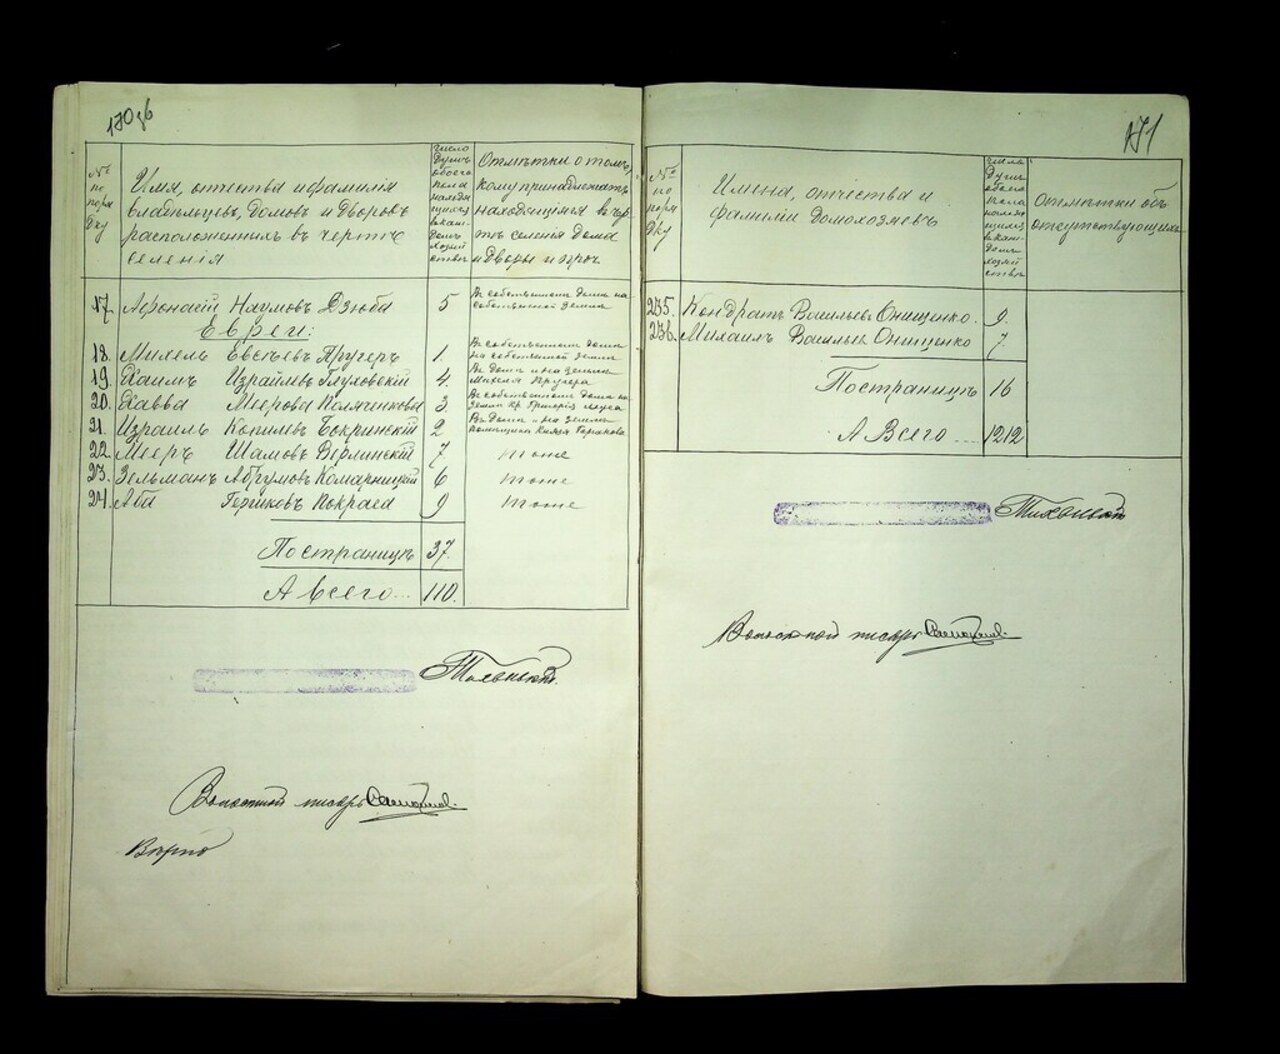 170об
№ по поря дку
Имя, отчества и фамилія
владѣльцевъ, домовъ и дворовъ
расположенныхъ въ чертѣ
селенія
число душъ обоего пола находящихся въ каждомъ хозяйствѣ
Отмѣтки о томъ,
кому принадлежатъ
находящіяся въ чер-
тѣ селенія дома
и дворы и проч.
17. Афонасій Наумовъ Дзюба 5 Въ собственномъ домѣ на
собственной землѣ
Евреи:
18. Михель Евсѣевъ Пругеръ 1. Въ собственномъ домѣ
на собственной землѣ
19. Хаимъ Израйлевъ Глуховскій 4. Въ домѣ и на землѣ
Михеля Пругера
20. Хавва Меерова Поляченкова 3. Въ собственномъ домѣ на
землѣ кр. Григорія
21. Израиль Копилевъ Бокринскій 2 Въ домѣ и на землѣ
помѣщика Князя Горчакова
22. Мееръ Шамовъ Верлинскій 7 тоже
23. Зельманъ Абрумовъ Комарницкій 6 тоже
24. Аба Гершковъ Покраса 9 тоже
Постраницѣ 37.
А Всего... 110.
Волостной писарь
Вѣрно
171
№ по поря дку
Имена, отчества и
фамиліи домохозяевъ
число душъ обоего пола находящихся въ каждомъ хозяйствѣ
Отмѣтки объ
отсутствующихъ
235. Кондратъ Васильевъ Онищенко. 9.
236. Михаилъ Васильевъ Онищенко 7.
Постраницѣ 16
А Всего .... 1212
Волостной писарь